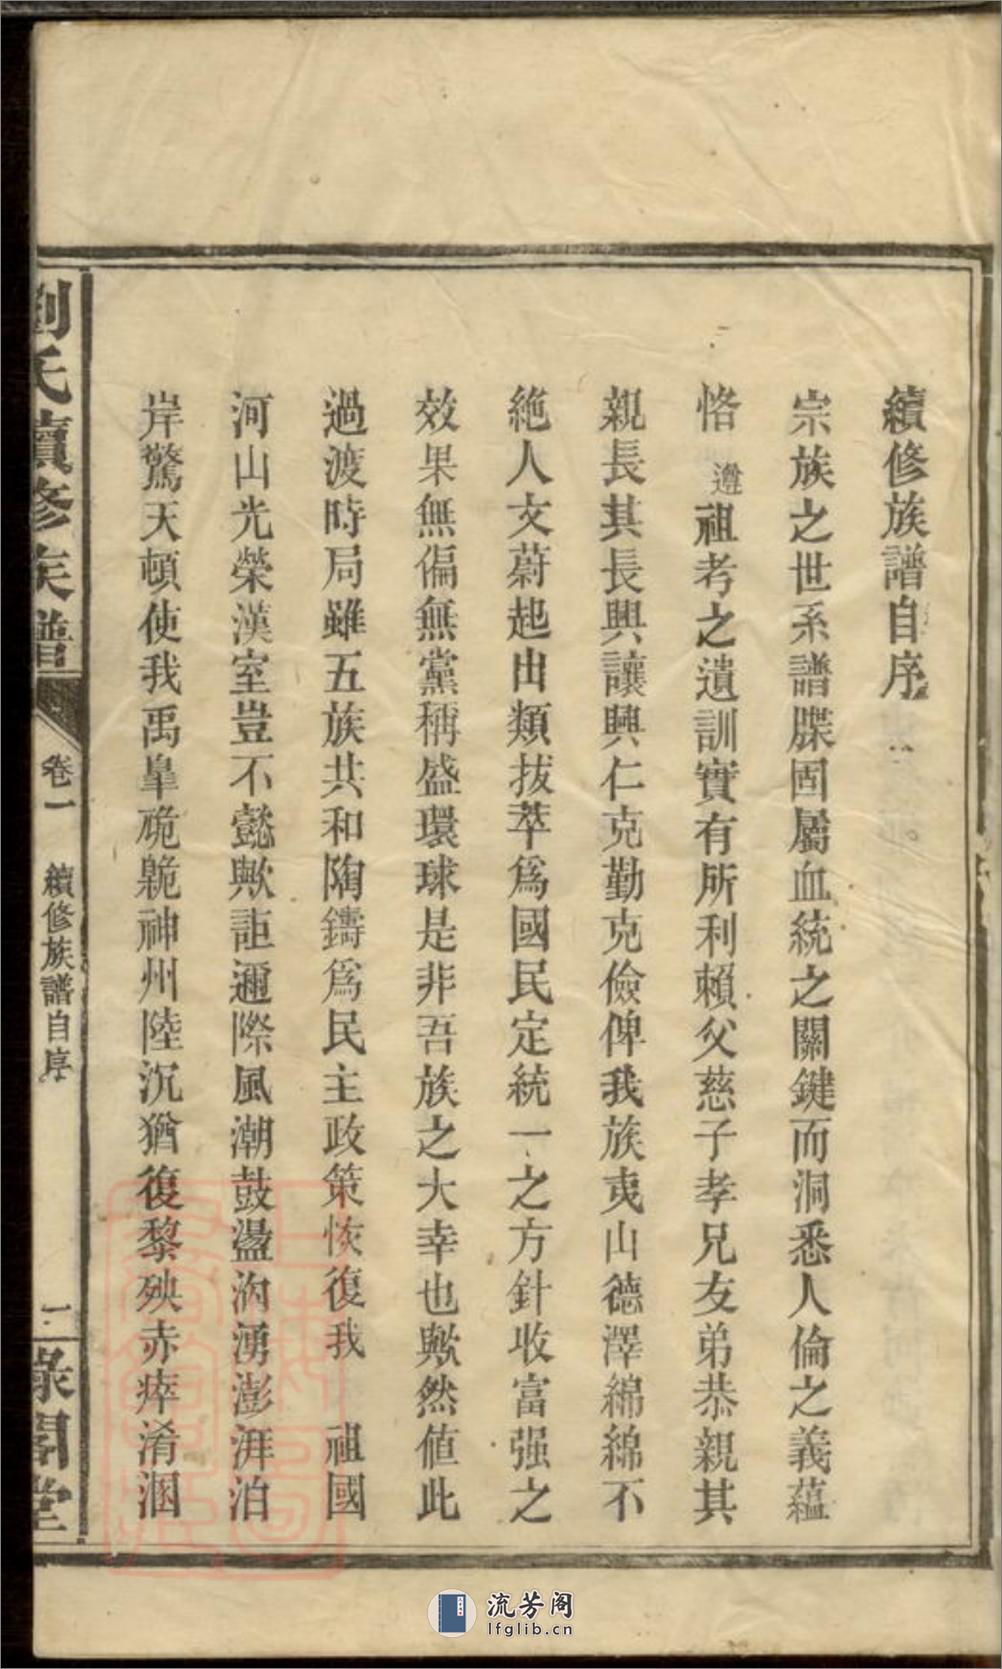 續修族譜自序
宗族之世系譜牒固屬血統之關鍵而洞悉人倫之義蘊
恪遵祖考之遺訓實有所利賴父慈子孝兄友弟恭親其
親長其長興讓興仁克勤克儉俾我族夷山德澤綿綿不
絶人文蔚起出類拔萃爲國民定統一之方針收富强之
效果無偏無黨稱盛環球是非吾族之大幸也歟然值此
過渡時局雖五族共和陶鑄爲民主政策恢復我 祖國
河山光榮漢室豈不懿歟詎邇際風潮鼓盪洶湧澎湃泊
岸驚天頓使我禹臯硊臲神州陸沉猶復黎殃赤瘁淆溷
劉氏續修族譜
卷一
續修族譜自序
二
祿閣堂
流芳阁
lfglib.cn